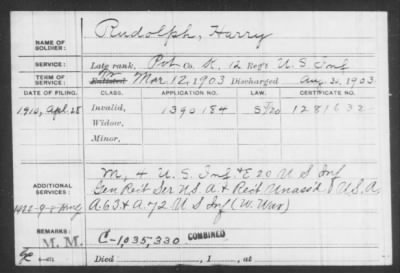 Rudolph, Harry
NAME OF SOLDIER:
SERVICE: Late rank, Pvt Co. K, 12 Reg't U.S. Inf
TERM OF SERVICE: Enlisted Mar 12, 1903 Discharged Aug. 30, 1903
DATE OF FILING. CLASS. APPLICATION NO. LAW. CERTIFICATE NO.
1910, Apl. 28 Invalid, 1390184 1281632
Widow,
Minor,
ADDITIONAL SERVICES:
M, 4 U.S. Inf & E 20 U S Inf
Gen Rect Ser U.S.A & Rect Unass'd U.S.A,
A 63 & A. 72 U S Inf (W. War)
REMARKS: C-1,035,330 COMBINED
M. M.
Died , 1 , at